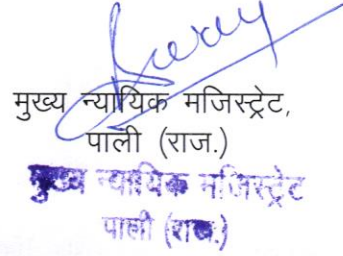 मुख्य न्यायिक मजिस्ट्रेट,
पाली (राज.)
मुख्य न्यायिक मजिस्ट्रेट
पाली (राज.)